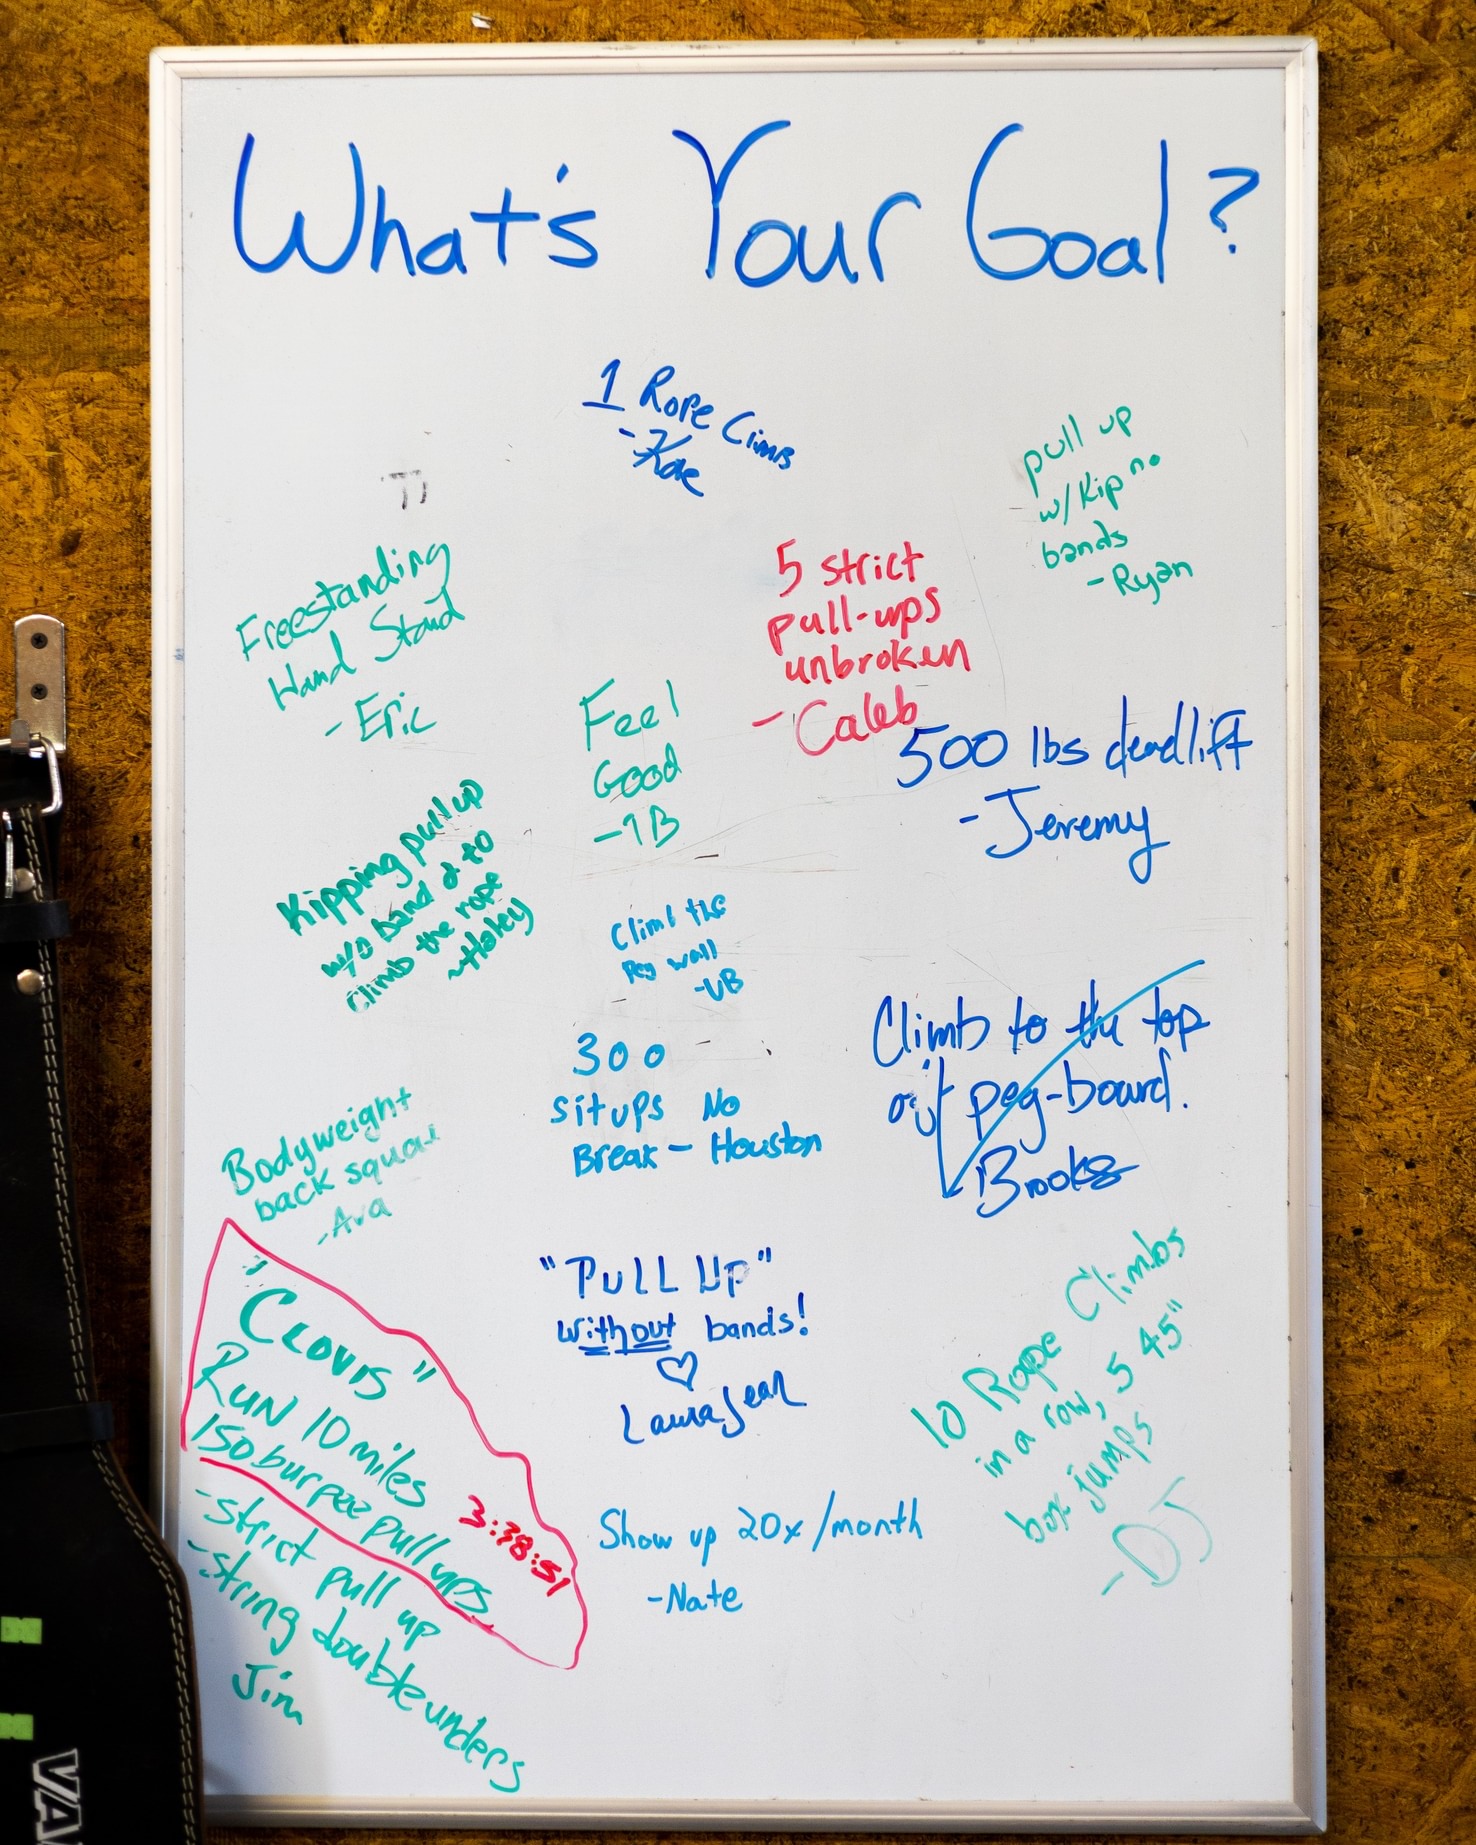 What's Your Goal?
1 Rope Climb
- Kae
pull up
w/ Kip no
bands
- Ryan
Freestanding
Hand Stand
- Eric
5 strict
pull-ups
unbroken
- Caleb
Feel
Good
- TB
500 lbs deadlift
- Jeremy
Kipping pull up
w/o band & to
climb the rope
~ Haley
Climb the
peg wall
- VB
300
situps No
Break - Houston
Climb to the top
of peg-board.
Brooks
Bodyweight
back squat
- Ava
"Clovis"
Run 10 miles
150 burpee pull ups
3:38:51
- strict pull up
- string double unders
Jim
"PULL UP"
without bands!
LauraJean
10 Rope Climbs
in a row, 5 45"
box jumps
- DJ
Show up 20x/month
- Nate
VA